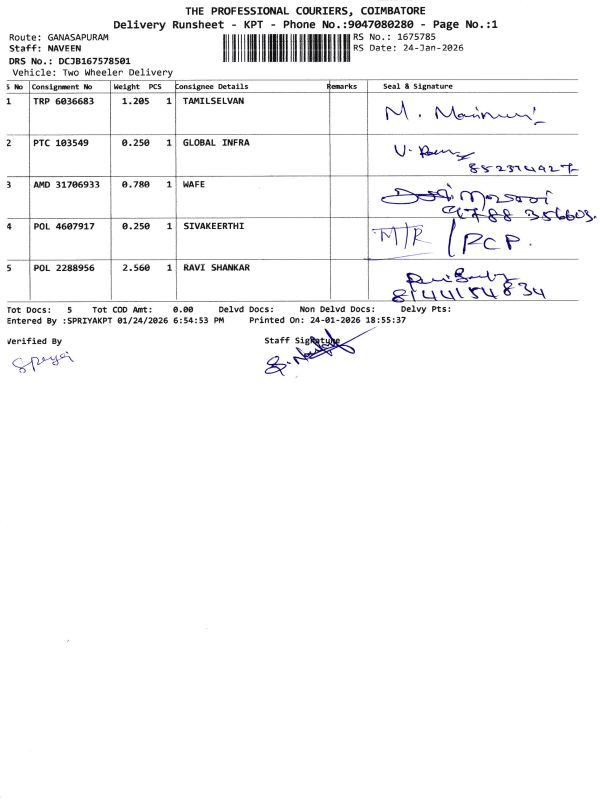 THE PROFESSIONAL COURIERS, COIMBATORE
Delivery Runsheet - KPT - Phone No.:9047080280 - Page No.:1
Route: GANASAPURAM
RS No.: 1675785
Staff: NAVEEN
RS Date: 24-Jan-2026
DRS No.: DCJB167578501
Vehicle: Two Wheeler Delivery
S No Consignment No Weight PCS Consignee Details Remarks Seal & Signature
1 TRP 6036683 1.205 1 TAMILSELVAN M.
2 PTC 103549 0.250 1 GLOBAL INFRA
3 AMD 31706933 0.780 1 WAFE
4 POL 4607917 0.250 1 SIVAKEERTHI M/R / PCP.
5 POL 2288956 2.560 1 RAVI SHANKAR
8144154834
Tot Docs: 5 Tot COD Amt: 0.00 Delvd Docs: Non Delvd Docs: Delvy Pts:
Entered By :SPRIYAKPT 01/24/2026 6:54:53 PM Printed On: 24-01-2026 18:55:37
Verified By Staff Signature